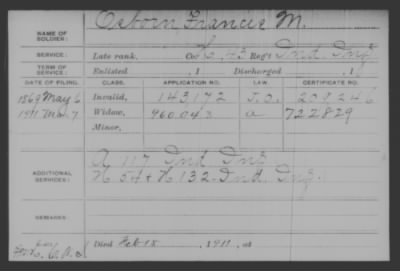 NAME OF SOLDIER: Osborn, Francis M.
SERVICE: Late rank, Co. H, 43 Reg't Ind. Inf.
TERM OF SERVICE: Enlisted 1 Discharged , 1
DATE OF FILING. CLASS. APPLICATION NO. LAW. CERTIFICATE NO.
1869 May 6 Invalid, 143,172
1911 Mar. 7 Widow, 960.043 a 722829
Minor,
A 117 Ind Inf
ADDITIONAL SERVICES: H 54 + K 132 Ind. Inf.
REMARKS:
Died Feb 18, 1911, at